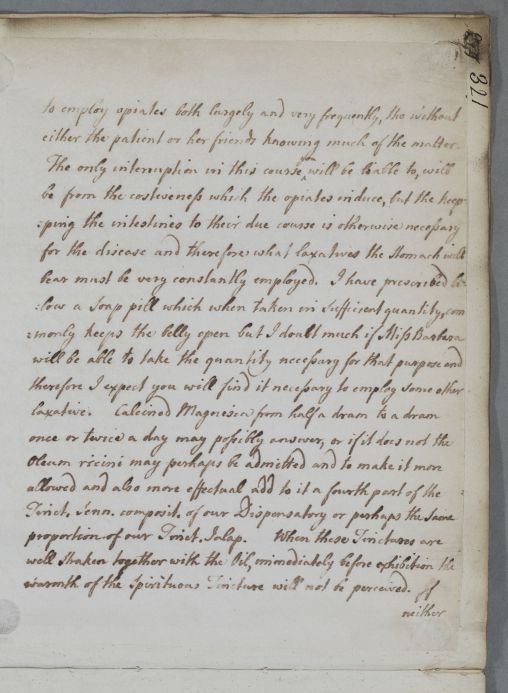 321
to employ opiates both largely and very frequently, tho without
either the patient or her friends knowing much of the matter.
The only interruption in this course you will be liable to, will
be from the costiveness which the opiates induce, but the keep-
:ping the intestines to their due course is otherwise necessary
for the disease and therefore what laxatives the Stomach will
bear must be very constantly employed. I have prescribed be-
:low a Soap pill which when taken in sufficient quantity com
:monly keeps the belly open but I doubt much if Miss Barbara
will be able to take the quantity necessary for that purpose and
therefore I expect you will find it necessary to employ some other
laxative. Calcined Magnesia from half a dram to a dram
once or twice a day may possibly answer, or if it does not the
Oleum ricini may perhaps be admitted and to make it more
allowed and also more effectual add to it a fourth part of the
Tinct. Senn. composit. of our Dispensatory or perhaps the same
proportion of our Tinct. Jalap. When these Tinctures are
well shaken together with the Oil, immediately before exhibition the
warmth of the Spirituous Tincture will not be perceived. If
neither